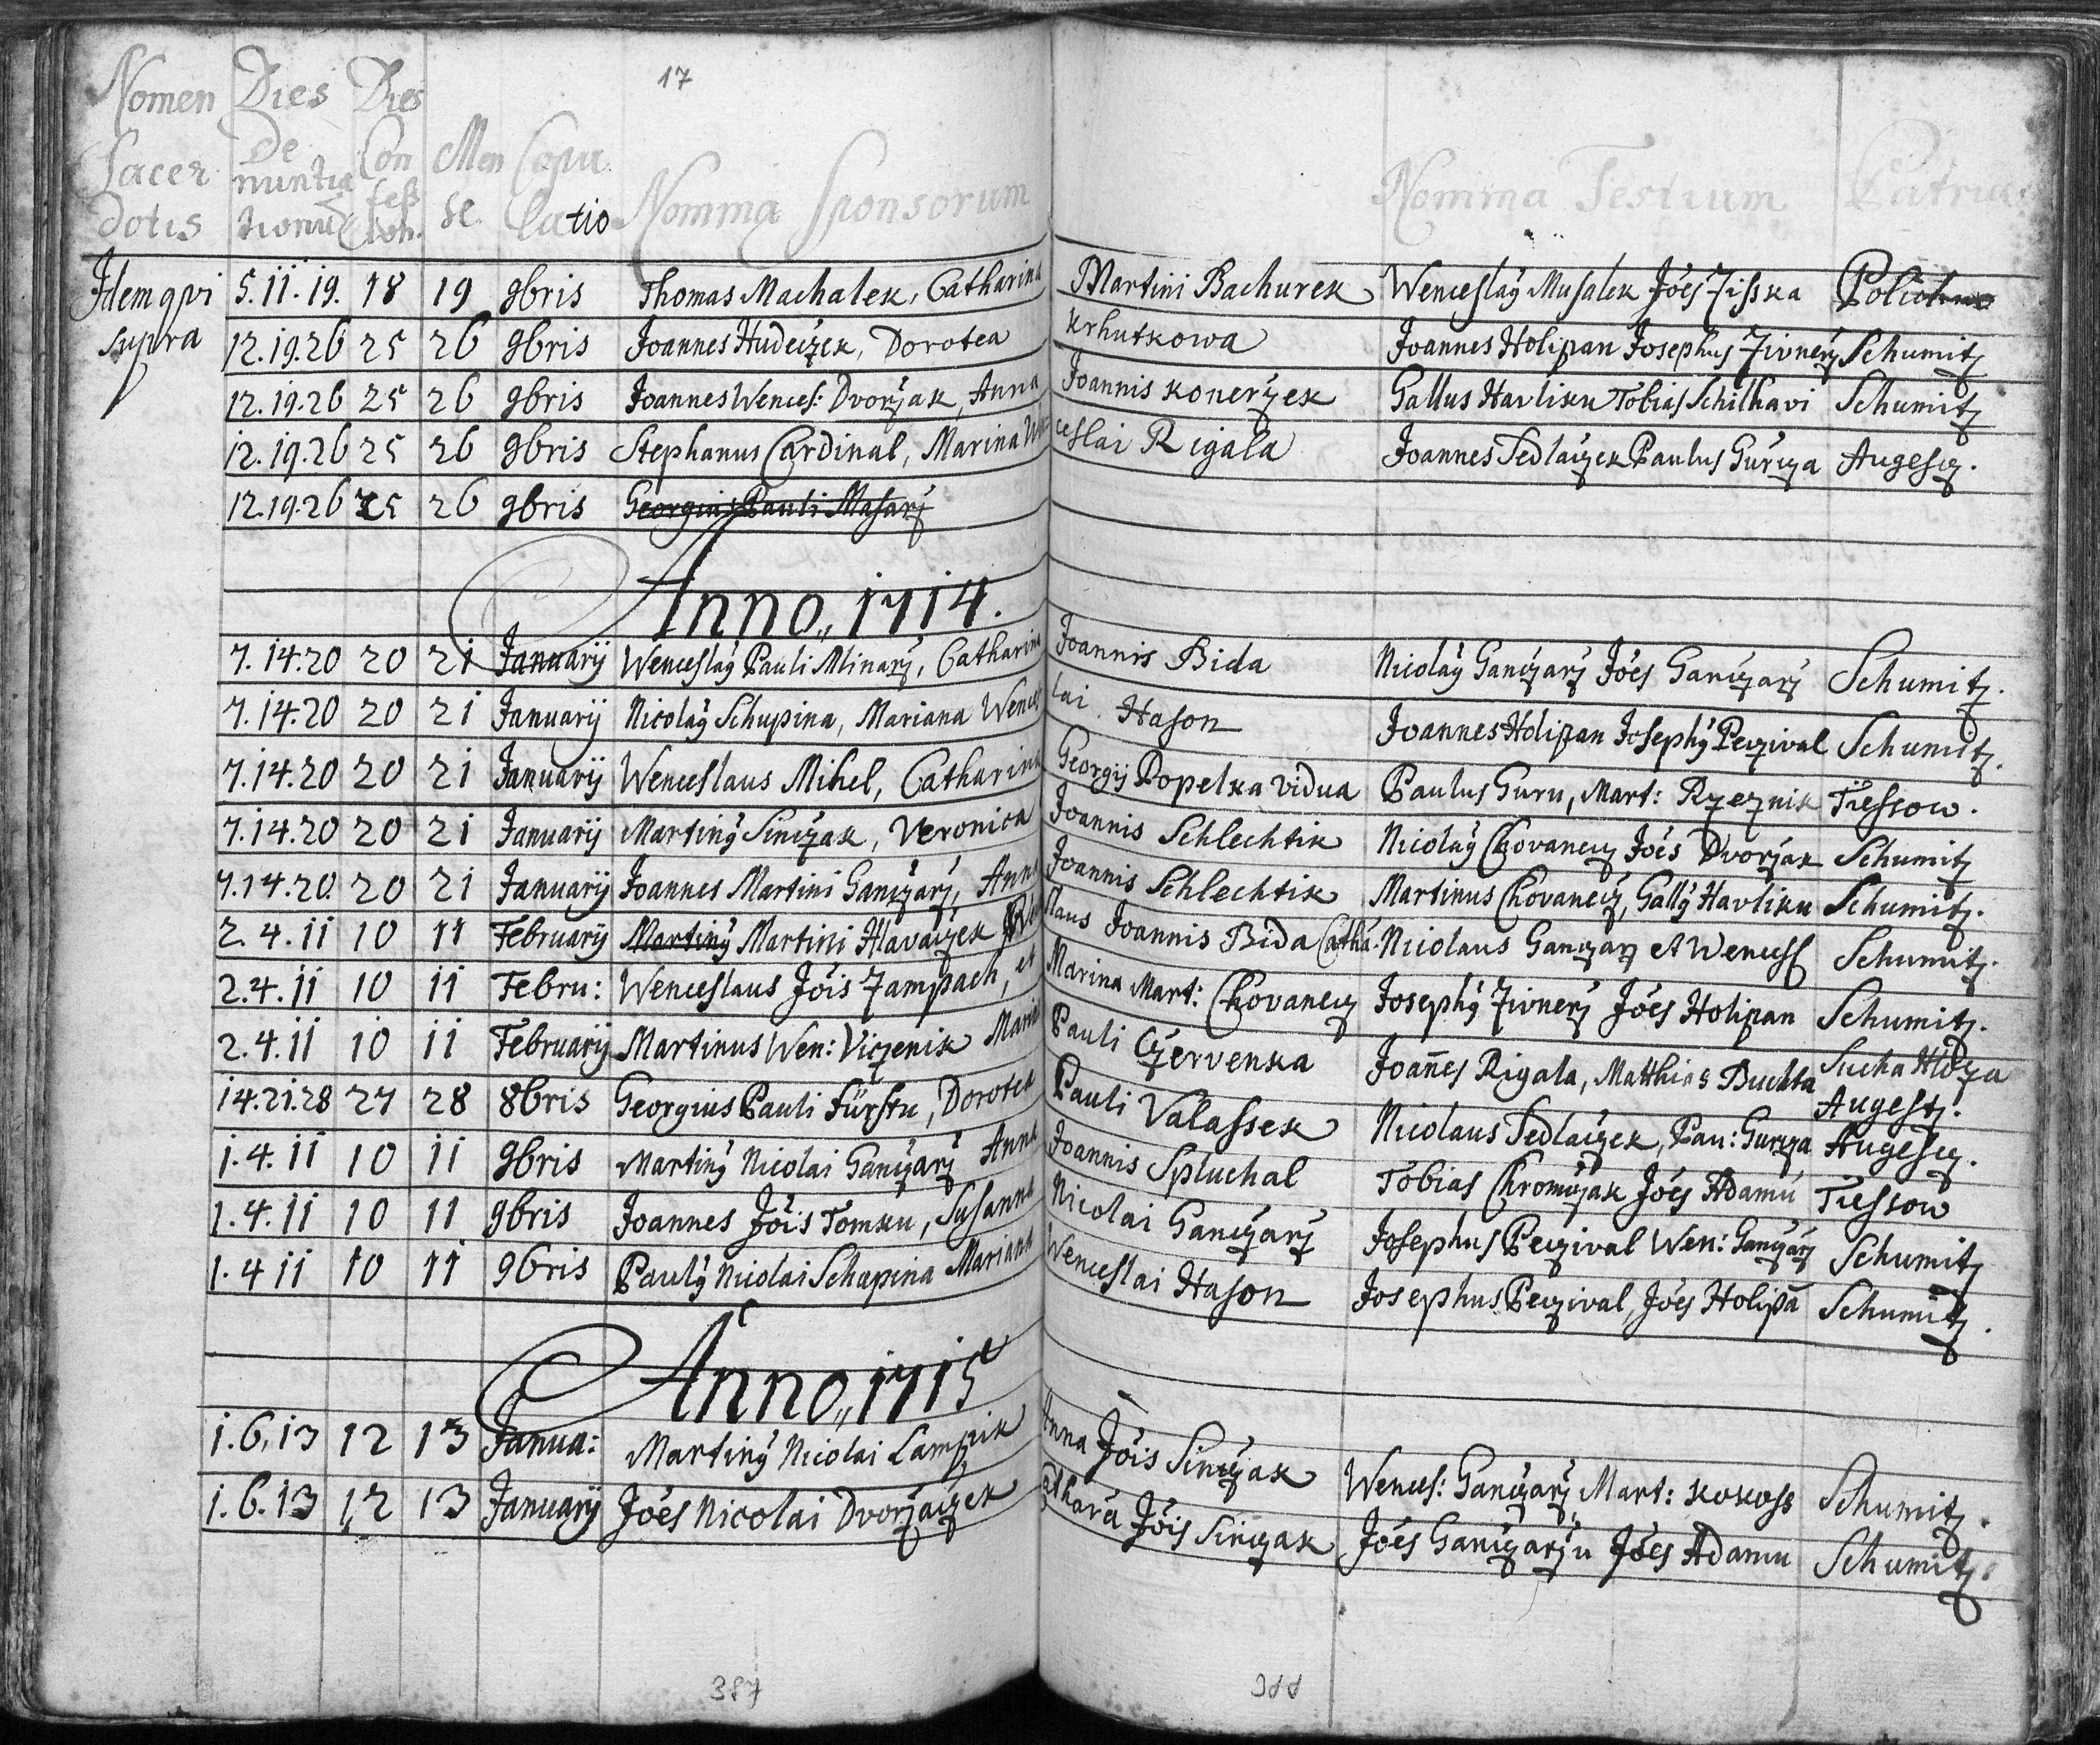 17
Nomen Dies Dies
De
Sacer nuntia Con Men Copu
feß
dotis tionũ ion. se. latio Nomina Sponsorum Nomina Testium Patria
Idem qvi 5.11.19. 18 19 9bris Thomas Machalek, Catharina Martini Bachurek Wenceslaỹ Musalek Jões Zisska
supra 12.19.26 25 26 9bris Joannes Hudeczek, Dorotea Krhutkowa Joannes Holipan Josephus Zivnerz Schumitz
12.19.26 25 26 9bris Joannes Wences: Dvorzak, Anna Joannis Konerzek Gallus Havliku Tobias Schilhavi Schumitz
12.19.26 25 26 9bris Stephanus Cardinal, Marina Wen ceslai Rigala Joannes Sedlaczek Paulus Gurcza Augescz.
12.19.26 25 26 9bris Georgius Pauli Masarz
Anno,, 1714.
7.14.20 20 21 Januarij Wenceslaỹ Pauli Mlinarz, Catharina Joannis Bida Nicolaỹ Ganczarz Jões Ganczarz Schumitz.
7.14.20 20 21 Januarij Nicolaỹ Schupina, Mariana Wences lai Hason Joannes Holipan Josephỹ Peczival Schumitz.
7.14.20 20 21 Januarij Wenceslaus Mihel, Catharina Georgij Popelka vidua Paulus Guru, Mart: Rzeznik Tiessow.
7.14.20 20 21 Januarij Martinỹ Sinczak, Veronica Joannis Schlechtik Nicolaỹ Chovanecz Jões Dvorzak Schumitz
7.14.20. 20 21 Januarij Joannes Martini Ganczarz, Anna Joannis Schlechtik Martinus Chovanecz, Gallỹ Havliku Schumitz.
2.4.11 10 11 Februarij Martinỹ Martini Hlavaczek Wen slaus Joannis Bida Cathã. Nicolaus Ganczarz et Wencesl Schumitz.
2.4.11 10 11 Febru: Wenceslaus Jõis Zampach, et Marina Mart: Chovanecz Josephỹ Zivnerz Jões Holipan Schumitz.
2.4.11 10 11 Februarij Martinus Wen: Viczenik Maria Pauli Czervenka Joañes Rigala, Matthias Buchta Sucha Hloza
Augestz.
14.21.28 27 28 8bris Georgius Pauli Fürstu, Dorotea Pauli Valassek Nicolaus Sedlaczek, Pau: Gurcza Augescz.
1.4.11 10 11 9bris Martinỹ Nicolai Ganczarz Anna Joannis Spluchal Tobias Chromczak Jões Adamu Tiessow
1.4.11 10 11 9bris Joannes Jõis Tomku, Susanna Nicolai Ganczarz Josephus Peczival Wen: Ganczarz Schumitz
1.4 11 10 11 9bris Paulỹ Nicolai Schapina Mariana Wenceslai Hason Josephus Peczival, Jões Holipã Schumitz.
Anno,, 1715
1.6.13 12 13 Janua: Martinỹ Nicolai Lampik Anna Jõis Sinczak Wences: Ganczarz Mart: Kokoss Schumitz.
1.6.13 12 13 Januarij Jões Nicolai Dvorzaczek Catharã Jõis Sinczak Jões Ganczarzu Jões Adamu Schumitz.
387 388